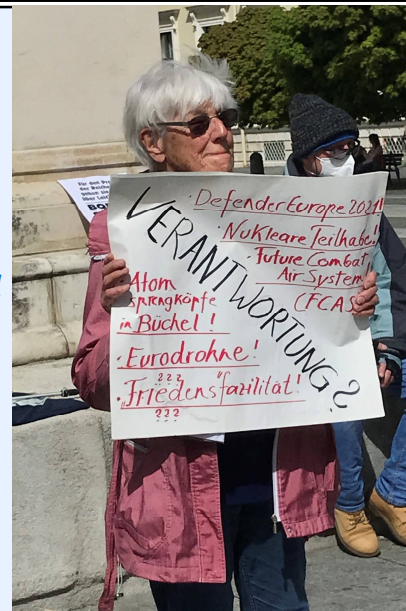 Für den
BO
· Defender Europe 2021!
· Nukleare Teilhabe!
· Future Combat
Air System
(FCAS)
VERANTWORTUNG?
· Atom
sprengköpfe
in Büchel!
· Eurodrohne!
???
· „Friedens"fazilität!
???